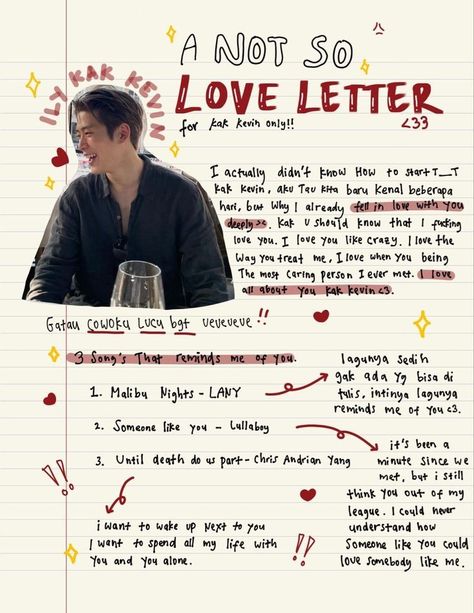 A NOT SO
ILY KAK KEVIN
LOVE LETTER
for kak kevin only!!
<33
I actually didn't know How to start T_T
kak kevin, aku Tau kita baru kenal beberapa
hari, but Why I already fell in love with you
deeply><. Kak U should know that I fucking
love you. I love you like crazy. I love the
Way you treat me, I love when you being
The most caring person I ever met. I love
all about you kak kevin <3.
Gatau COWOKU LUCU bgt veveveve !!
3 Song's That reminds me of you.
1. Malibu Nights - LANY
lagunya sedih
gak ada yg bisa di
tulis, intinya lagunya
reminds me of you <3.
2. Someone like you - Lullaboy
it's been a
minute since we
met, but i still
think you out of my
league. I could never
understand how
Someone like you could
love somebody like me.
3. Until death do us part - Chris Andrian Yang
!!
i want to wake up next to you
I want to spend all my life with
you and you alone.
!!